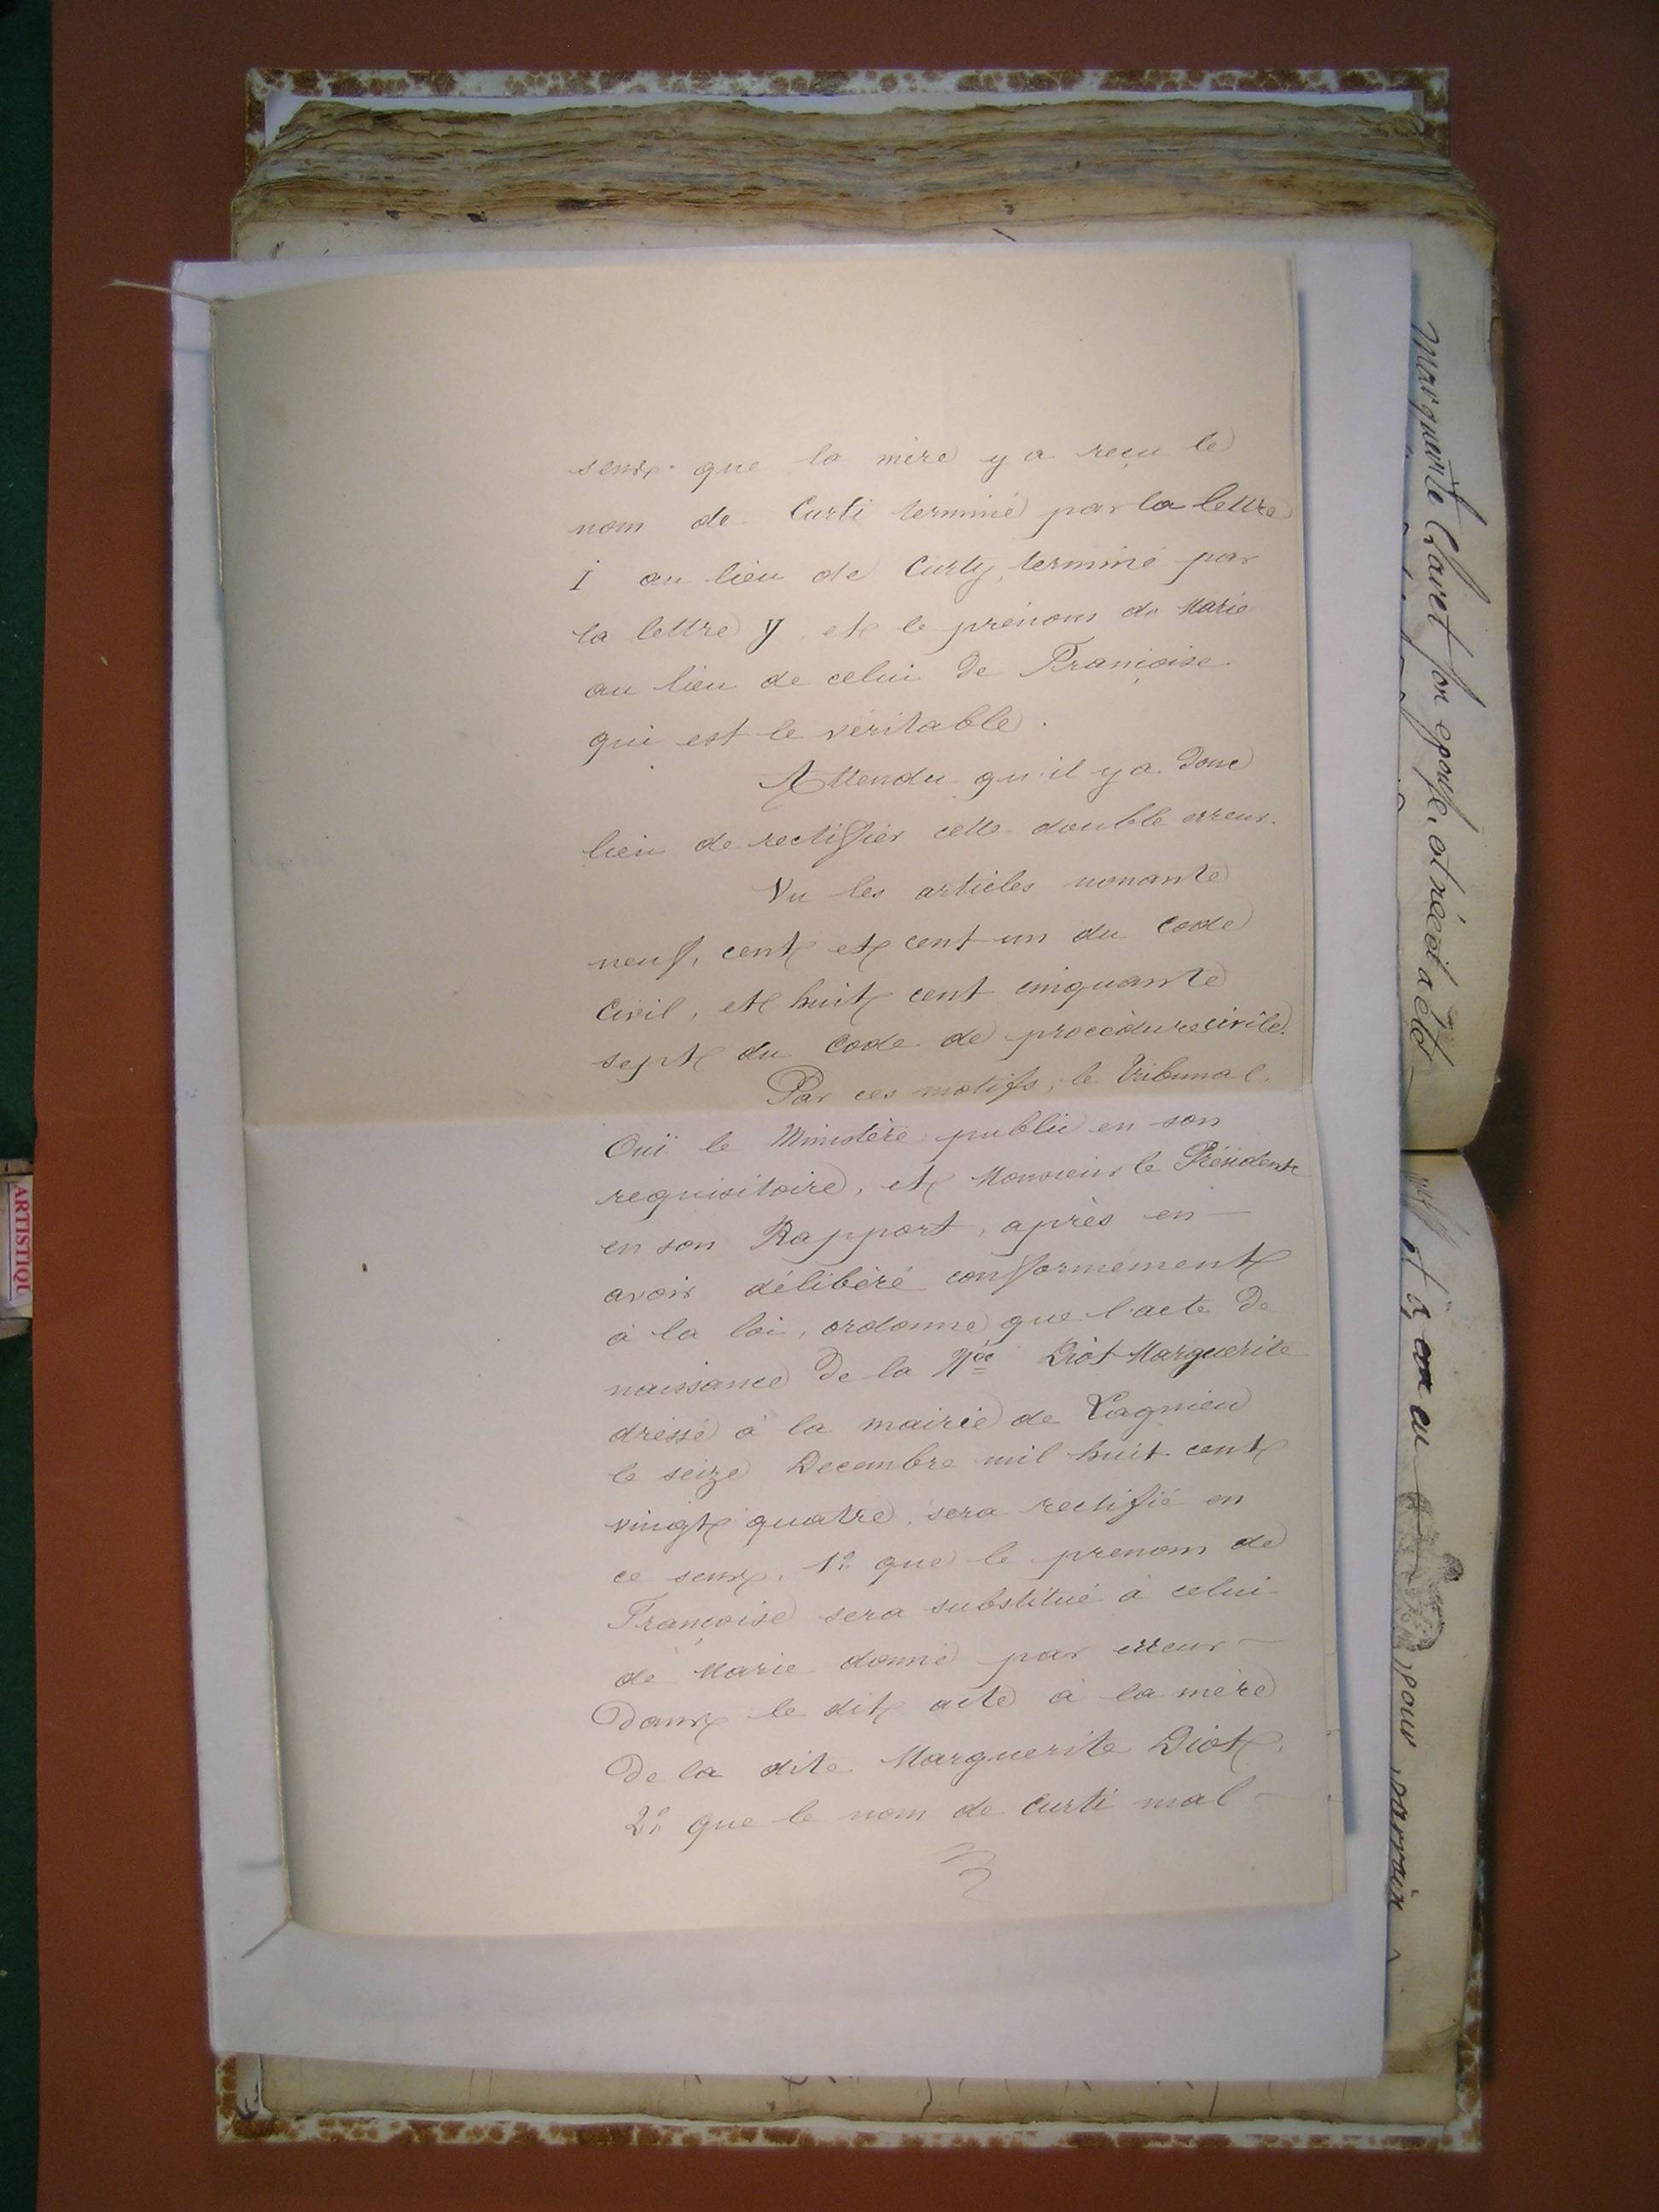 sens que la mère y a reçu le
nom de Curti terminé par la lettre
I au lieu de Curty, terminé par
la lettre Y, et le prénom de Marie
au lieu de celui de Françoise
qui est le véritable.
Attendu qu'il y a donc
lieu de rectifier cette double erreur.
Vu les articles nonante
neuf, cent et cent un du Code
Civil, et huit cent cinquante
sept du Code de procédure civile.
Par ces motifs, le Tribunal,
Ouï le Ministère public en son
requisitoire, et Monsieur le Président
en son Rapport, après en —
avoir délibéré conformement
à la loi, ordonne que l'acte de
naissance de la Née Diot Marguerite
dressé à la mairie de Lagnieu
le seize Decembre mil huit cent
vingt quatre, sera rectifié en
ce sens, 1° que le prenom de
Françoise sera substitué à celui
de Marie donné par erreur —
dans le dit acte à la mère
De la dite Marguerite Diot.
2° que le nom de Curti mal —
marguerite Claret son epouse, et né
et à
pour parrain
ARTISTIQU